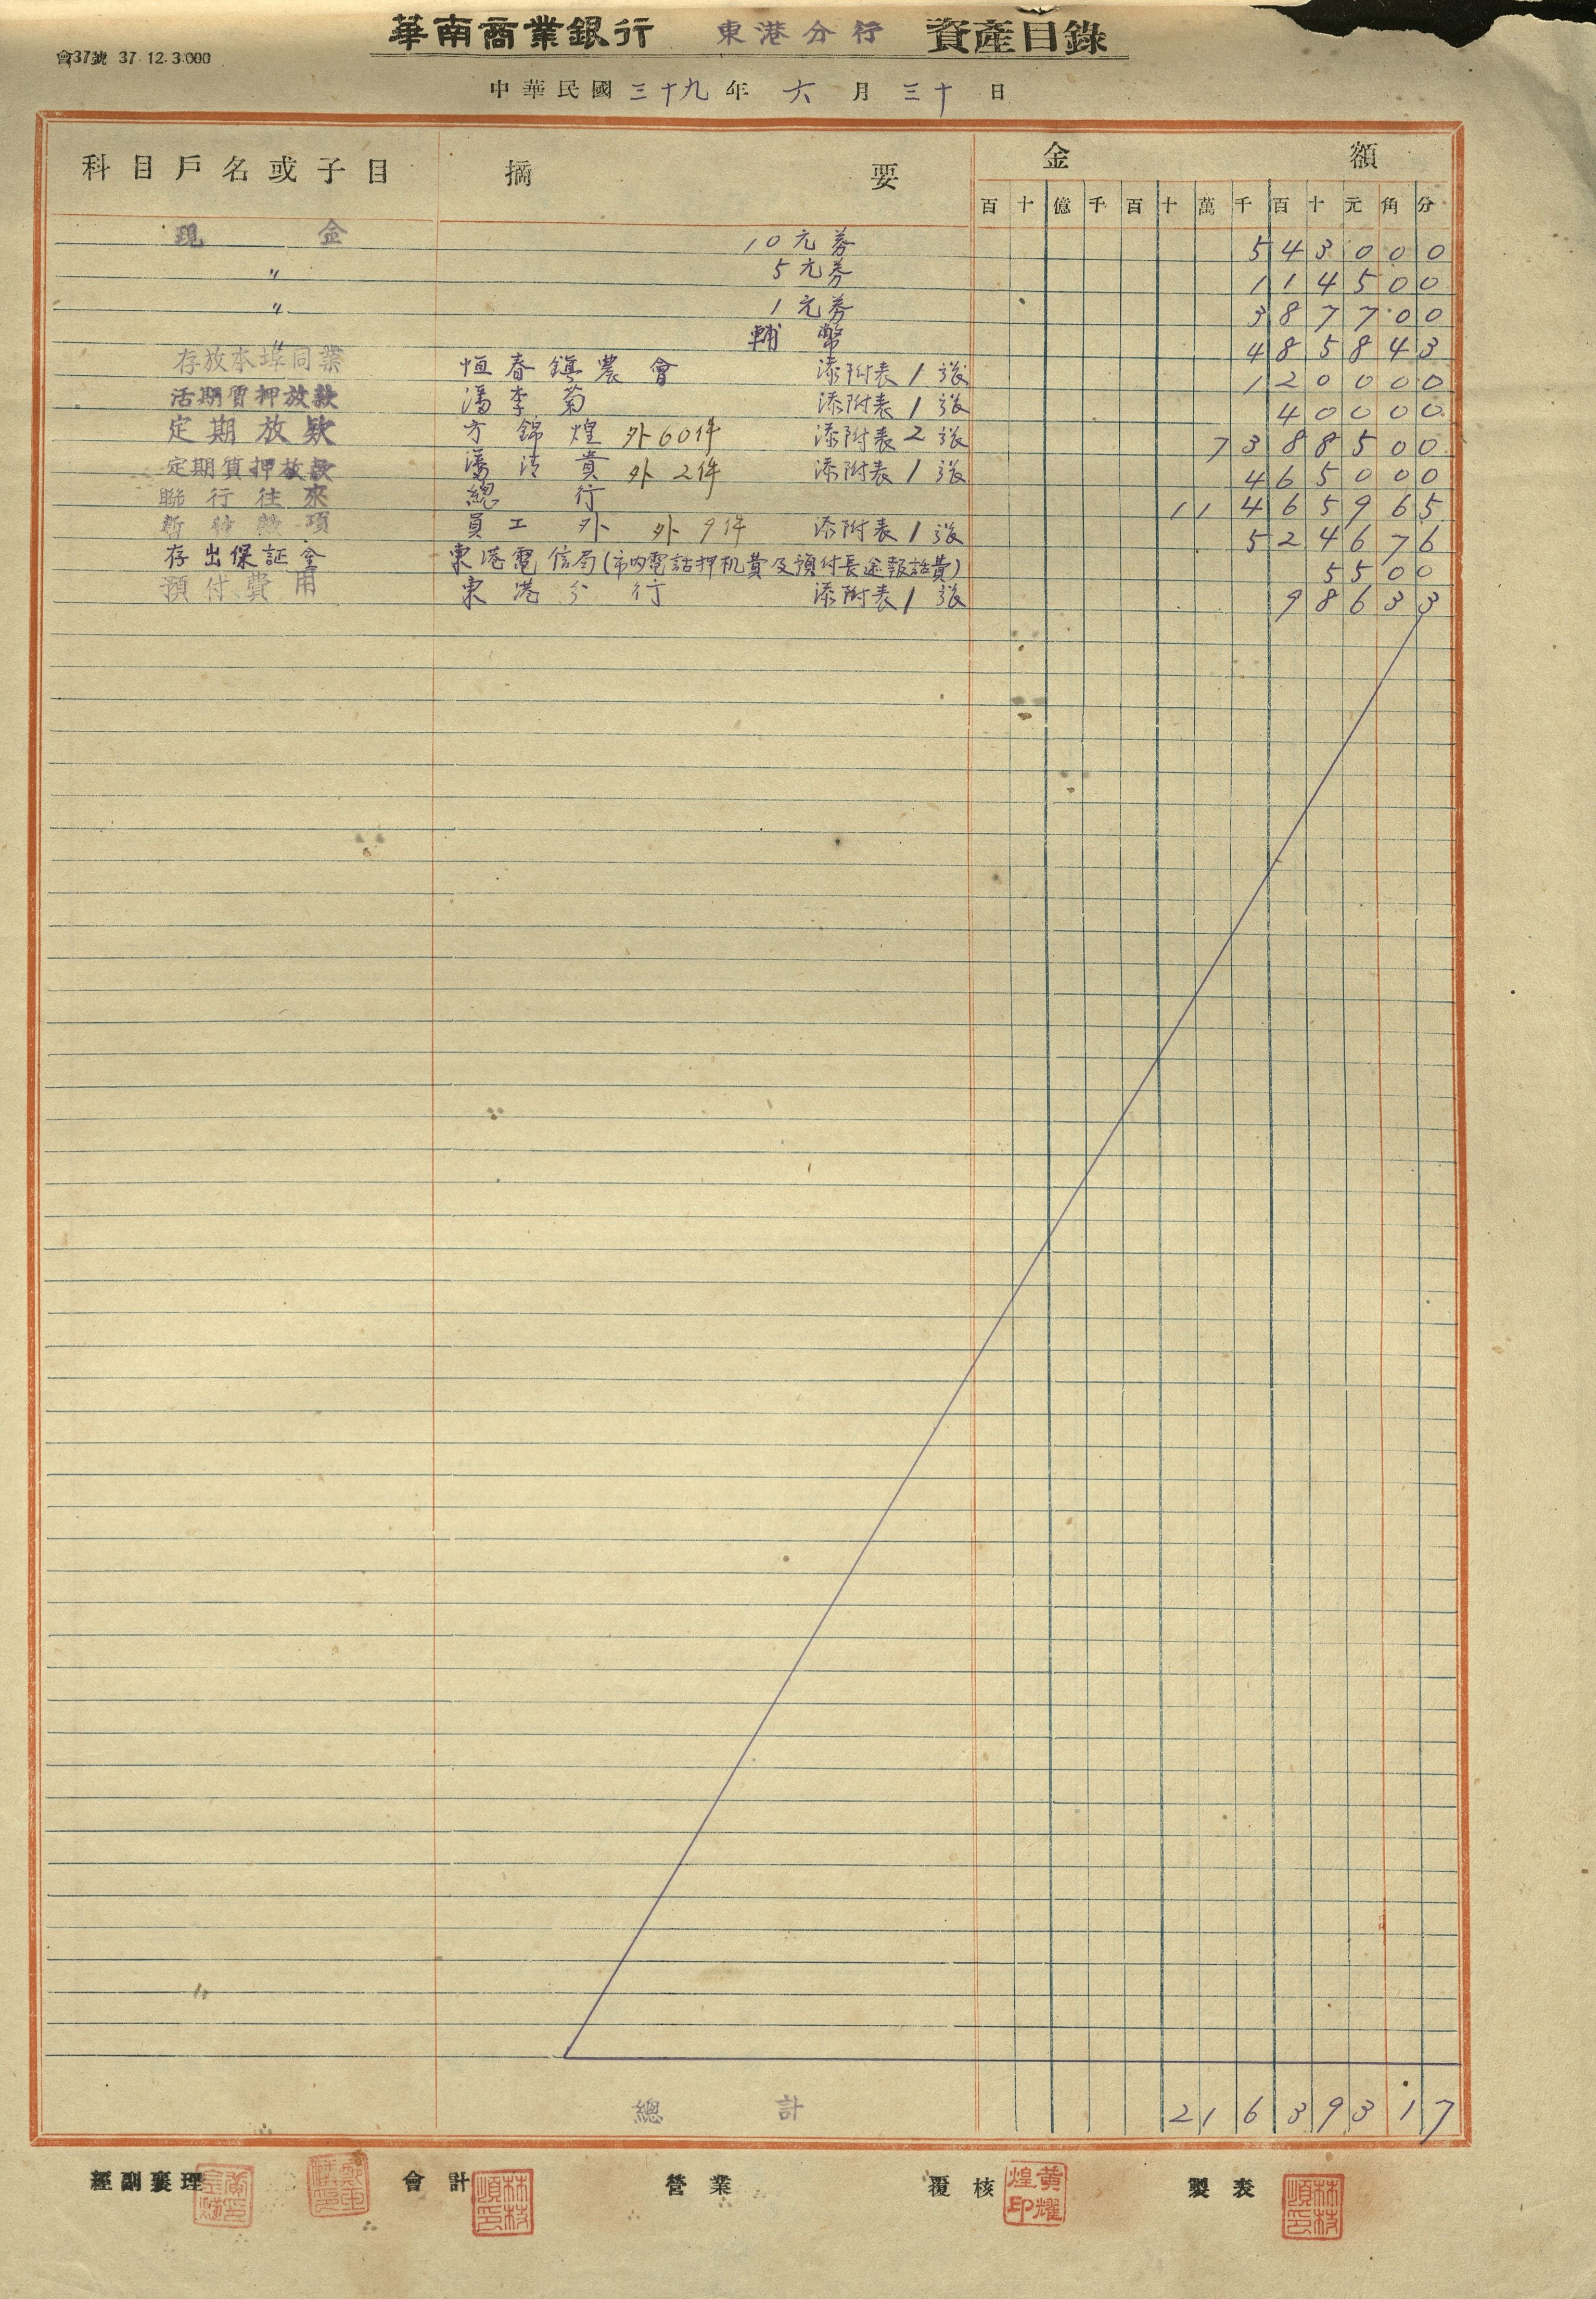 會37號 37.12.3.000
華南商業銀行 東港分行 資產目錄
中華民國 三十九 年 六 月 三十 日
科目戶名或子目 摘要 金額
百 十 億 千 百 十 萬 千 百 十 元 角 分
現金 10元券 543000
〃 5元券 114500
〃 1元券 387700
〃 輔幣 485843
存放本埠同業 恒春鎮農會 添附表1張 120000
活期質押放款 潘李菊 添附表1張 40000
定期放款 方錦煌 外60件 添附表2張 7388500
定期質押放款 潘清貴 外2件 添附表1張 465000
聯行往來 總行 11465965
暫付款項 員工 外 外9件 添附表1張 524676
存出保証金 東港電信局(市內電話押机費及預付長途報話費) 5500
預付費用 東港分行 添附表1張 98633
總計 21639317
經副襄理 會計 營業 覆核 製表
林枝順印 黃耀煌印 林枝順印